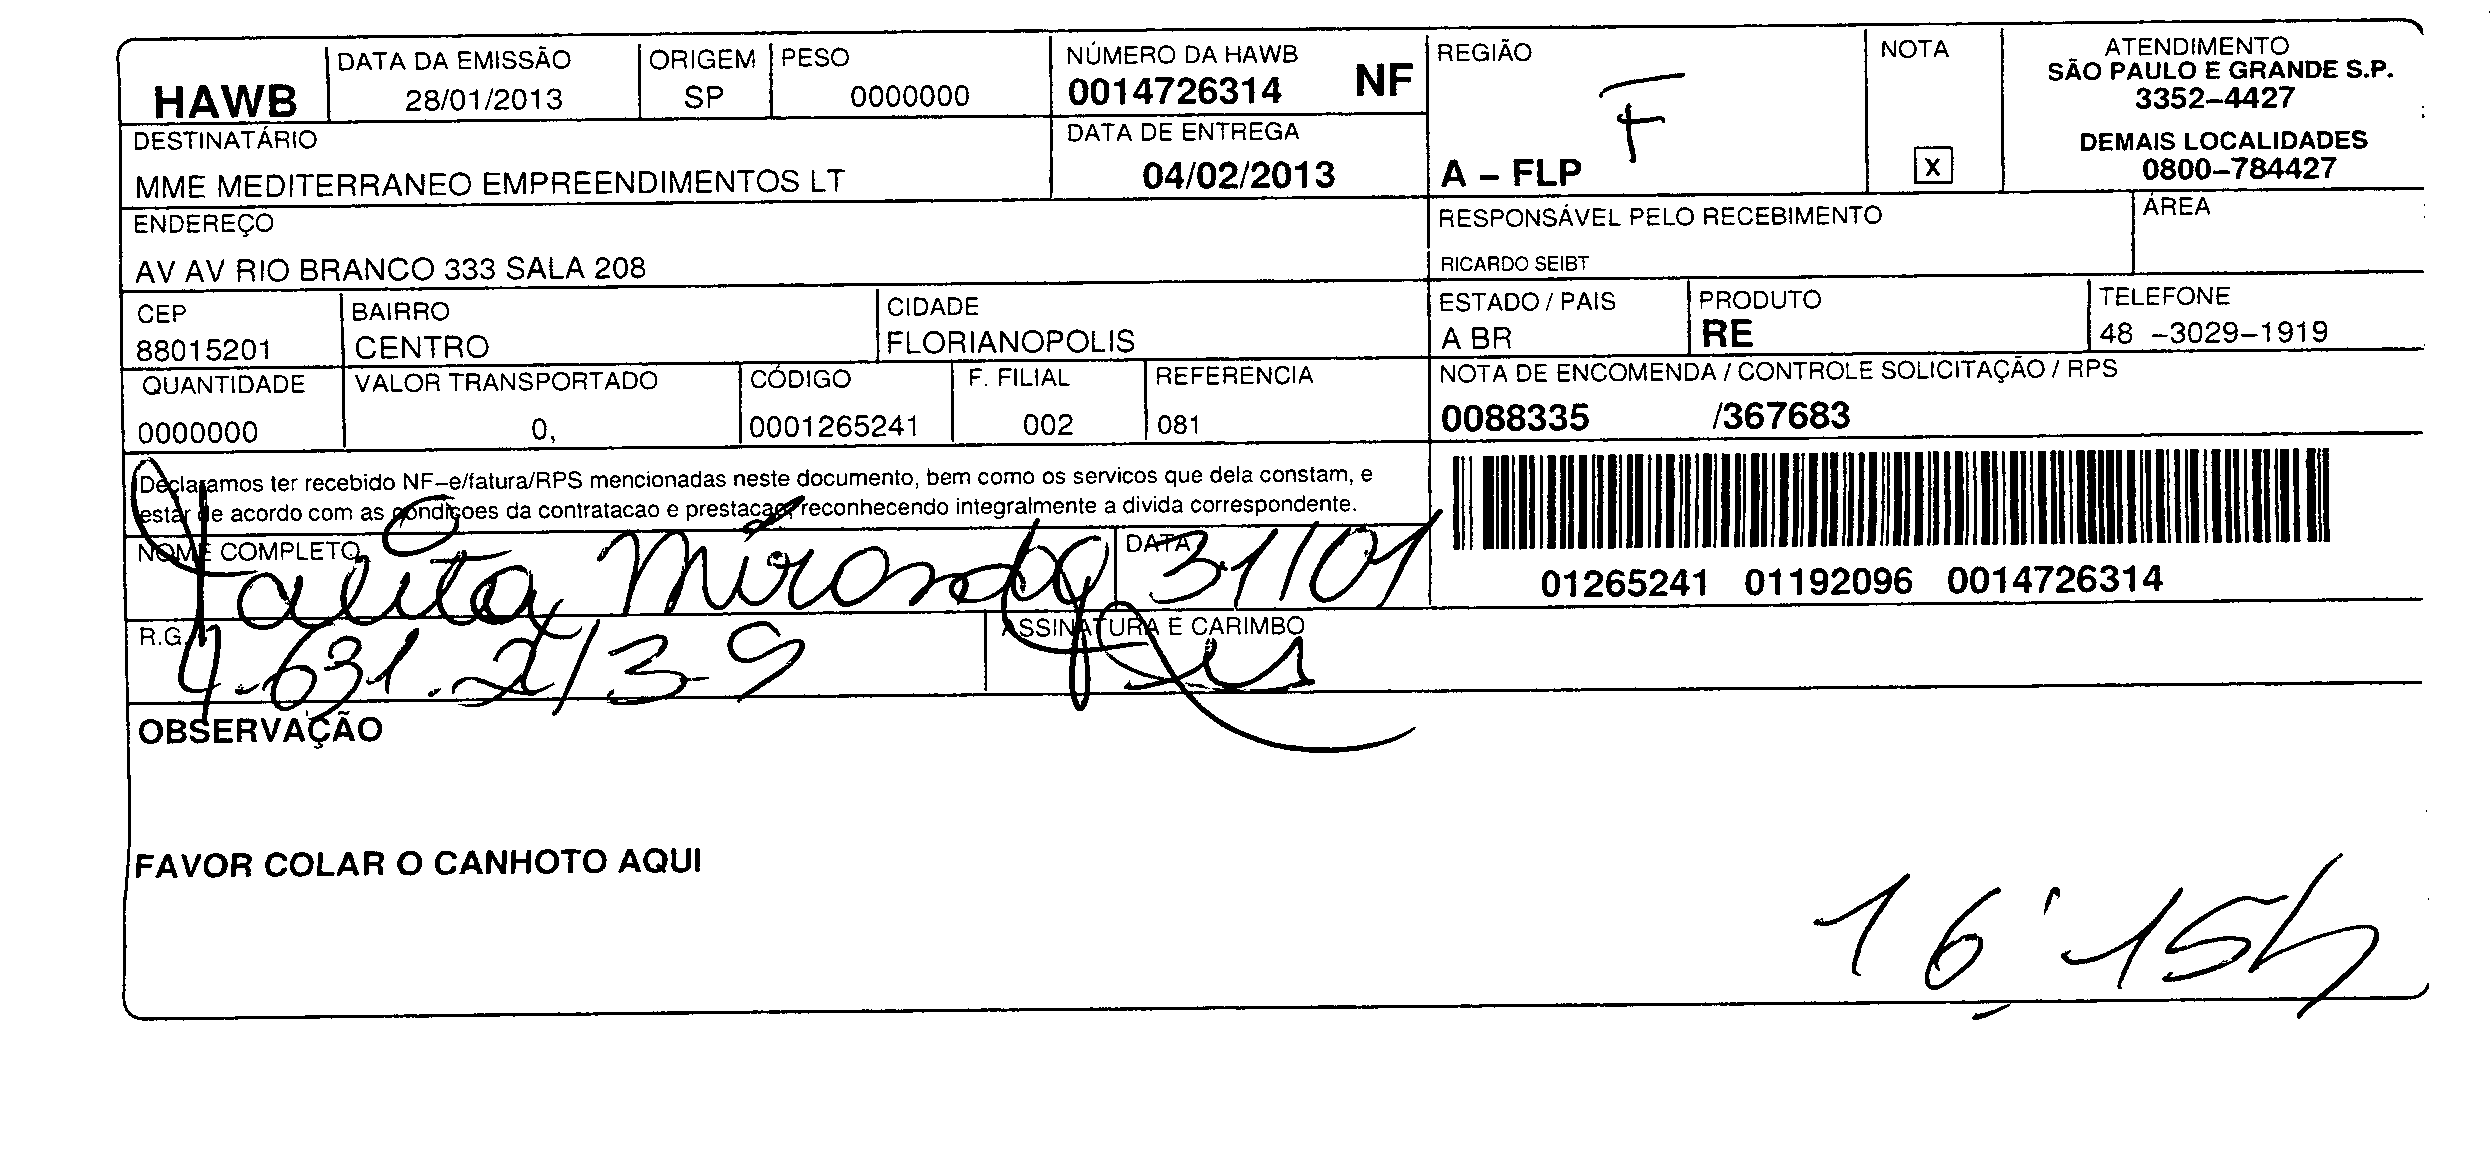 HAWB
DATA DA EMISSÃO
28/01/2013
ORIGEM
SP
PESO
0000000
NÚMERO DA HAWB
0014726314 NF
REGIÃO
F
A – FLP
NOTA
X
ATENDIMENTO
SÃO PAULO E GRANDE S.P.
3352–4427
DEMAIS LOCALIDADES
0800–784427
DESTINATÁRIO
MME MEDITERRANEO EMPREENDIMENTOS LT
DATA DE ENTREGA
04/02/2013
ENDEREÇO
AV AV RIO BRANCO 333 SALA 208
RESPONSÁVEL PELO RECEBIMENTO
RICARDO SEIBT
ÁREA
CEP
88015201
BAIRRO
CENTRO
CIDADE
FLORIANOPOLIS
ESTADO / PAIS
A BR
PRODUTO
RE
TELEFONE
48 –3029–1919
QUANTIDADE
0000000
VALOR TRANSPORTADO
0,
CÓDIGO
0001265241
F. FILIAL
002
REFERENCIA
081
NOTA DE ENCOMENDA / CONTROLE SOLICITAÇÃO / RPS
0088335 /367683
Declaramos ter recebido NF–e/fatura/RPS mencionadas neste documento, bem como os servicos que dela constam, e
estar de acordo com as condiçoes da contratacao e prestacao, reconhecendo integralmente a divida correspondente.
01265241 01192096 0014726314
NOME COMPLETO
Talita Miranda
DATA
31/01
R.G.
4.631.213-9
ASSINATURA E CARIMBO
OBSERVAÇÃO
FAVOR COLAR O CANHOTO AQUI
16:15h